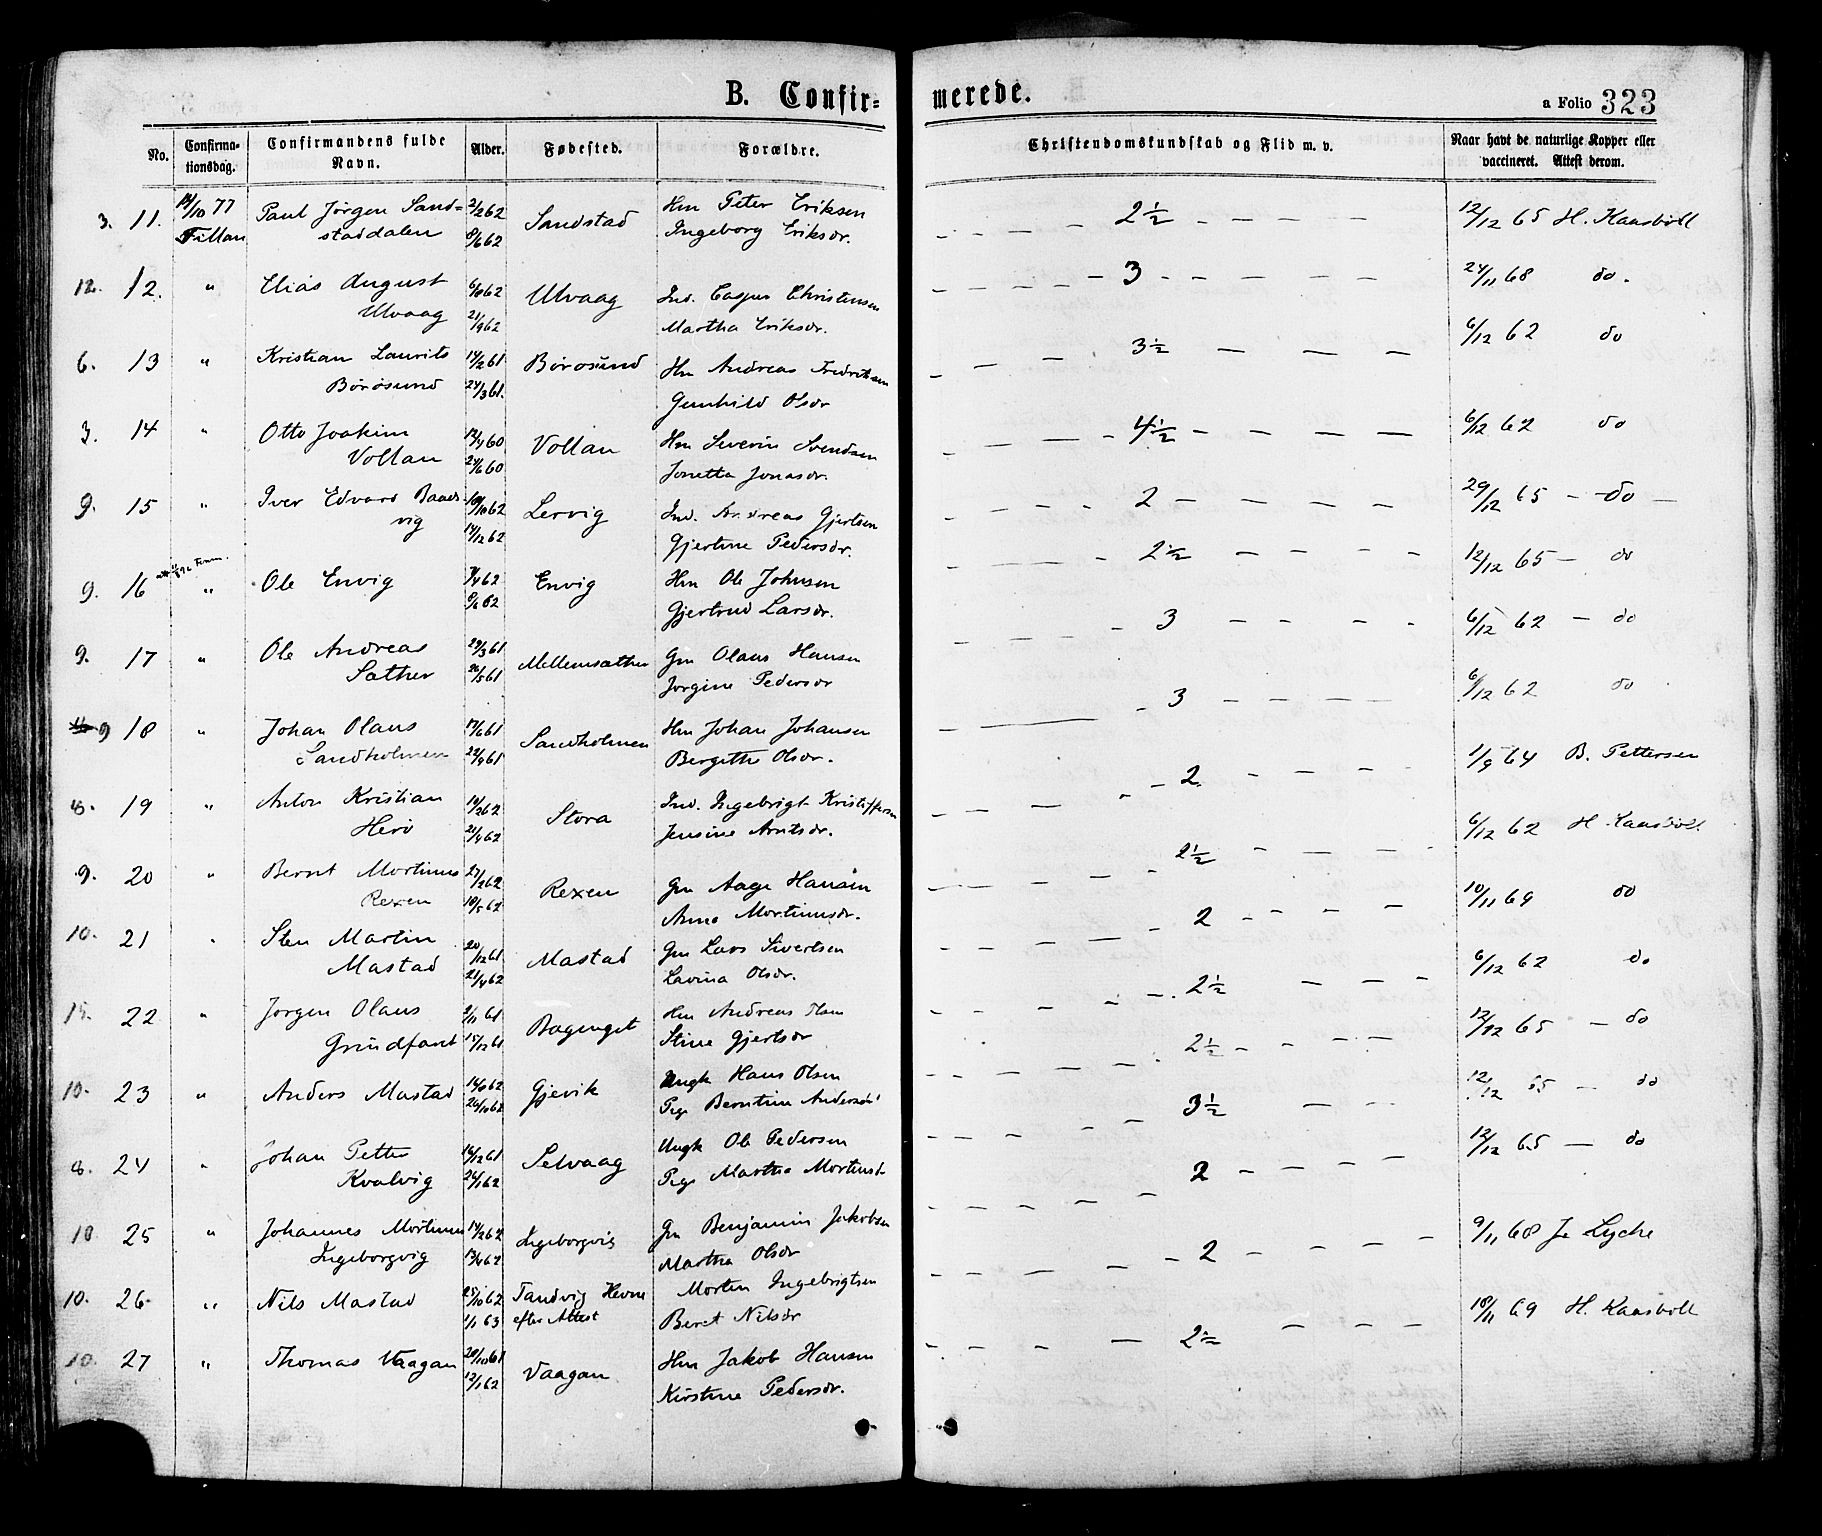 B. Confir=
merede.
a Folio 323
No.
Confirma-
tionsdag.
Confirmandens fulde
Navn.
Alder.
Fødested.
Forældre.
Christendomskundskab og Flid m. v.
Naar havt de naturlige Kopper eller
vaccineret. Attest derom.
3. 11. 14/10 77 Paul Jörgen Sand= 2/2 62 Sandstad Hm Peter Eriksen 2½ 12/12 65 H. Kaasböll
Fillan staddalen 8/6 62 Ingeborg Eriksdr.
12. 12. " Elias August 6/8 62 Ulvaag Ind. Casper Christensen 3 24/11 68 do.
Ulvaag 21/9 62 Martha Eriksdr.
6. 13 " Kristian Laurits 14/2 61 Börösund Hm Andreas Fredriksen 3½ 6/12 62 do
Börösund 24/3 61. Gunhild Olsdr
3. 14 " Otto Joakim 12/4 60 Vollan Hm Siverin Svendsen 4½ 6/12 62 do
Vollan 24/6 60 Jonetta Jonasdr.
9. 15 " Iver Edvard Baads 10/10 62 Lervig Ind. Andreas Gjertsen 2 29/12 65 do
vig 14/12 62 Gjertine Pedersdr.
9. 16 " Ole Envig 7/4 62 Envig Hm Ole Johnsen 2½ 12/12 65 do
9/6 62 Gjertrud Larsdr.
9. 17 " Ole Andreas 29/3 61 Mellemsæther Gm Olaus Hansen 3 6/12 62 do
Sæther 26/5 61 Jorgine Pedersdr
9 18 " Johan Olaus 17/6 61 Sandholmen Hm Johan Johansen 3 6/12 62 do
Sandholmen 22/9 61 Bergitte Olsdr.
8. 19 " Anton Kristian 14/2 62 Stora Ind. Ingebrigt Kristoffersen 2 1/9 64 B. Pettersen
Herö 21/4 62 Jensine Arntsdr.
9. 20 " Bernt Mortinus 27/2 62 Rexen Gm Aage Hansen 2½ 6/12 62 H Kaasböll
Rexen 18/5 62 Anne Mortinusdr.
10. 21 " Sten Martin 20/12 61 Mastad Gm Lars Sivertsen 2 10/11 69 do
Mastad 21/4 62 Lavina Olsdr.
15. 22 " Jørgen Olaus 2/11 61 Bagenget Hm Andreas Olsen 2½ 6/12 62 do
Grindfant 15/12 61 Stine Gjertsdr
10. 23 " Anders Mastad 14/8 62 Gjevik Ungk Hans Olsen 2½ 12/12 65 do
26/10 62 Pige Berntine Andersdr
8. 24 " Johan Petter 16/12 61 Selvaag Ungk Ole Pedersen 3½ 12/12 65 do
Kvalvig 26/1 62 Pige Martha Mortinsdr
10 25 " Johannes Mortinus 14/2 62 Ingeborgvig Gm Benjamin Jakobsen 2 12/12 65 do
Ingeborgvig 13/4 62 Martha Olsdr
10. 26. " Nils Mastad 25/10 62 Tandvig Hevne Morten Ingebrigtsen 2 9/11 68 Lyche
1/1 63 efter Attest Beret Nilsdr
10. 27 " Thomas Vaagan 20/10 61 Vaagan Hm Jakob Hansen 2½ 18/11 69 H. Kaasböll
12/1 62 Kirstine Pedersdr.